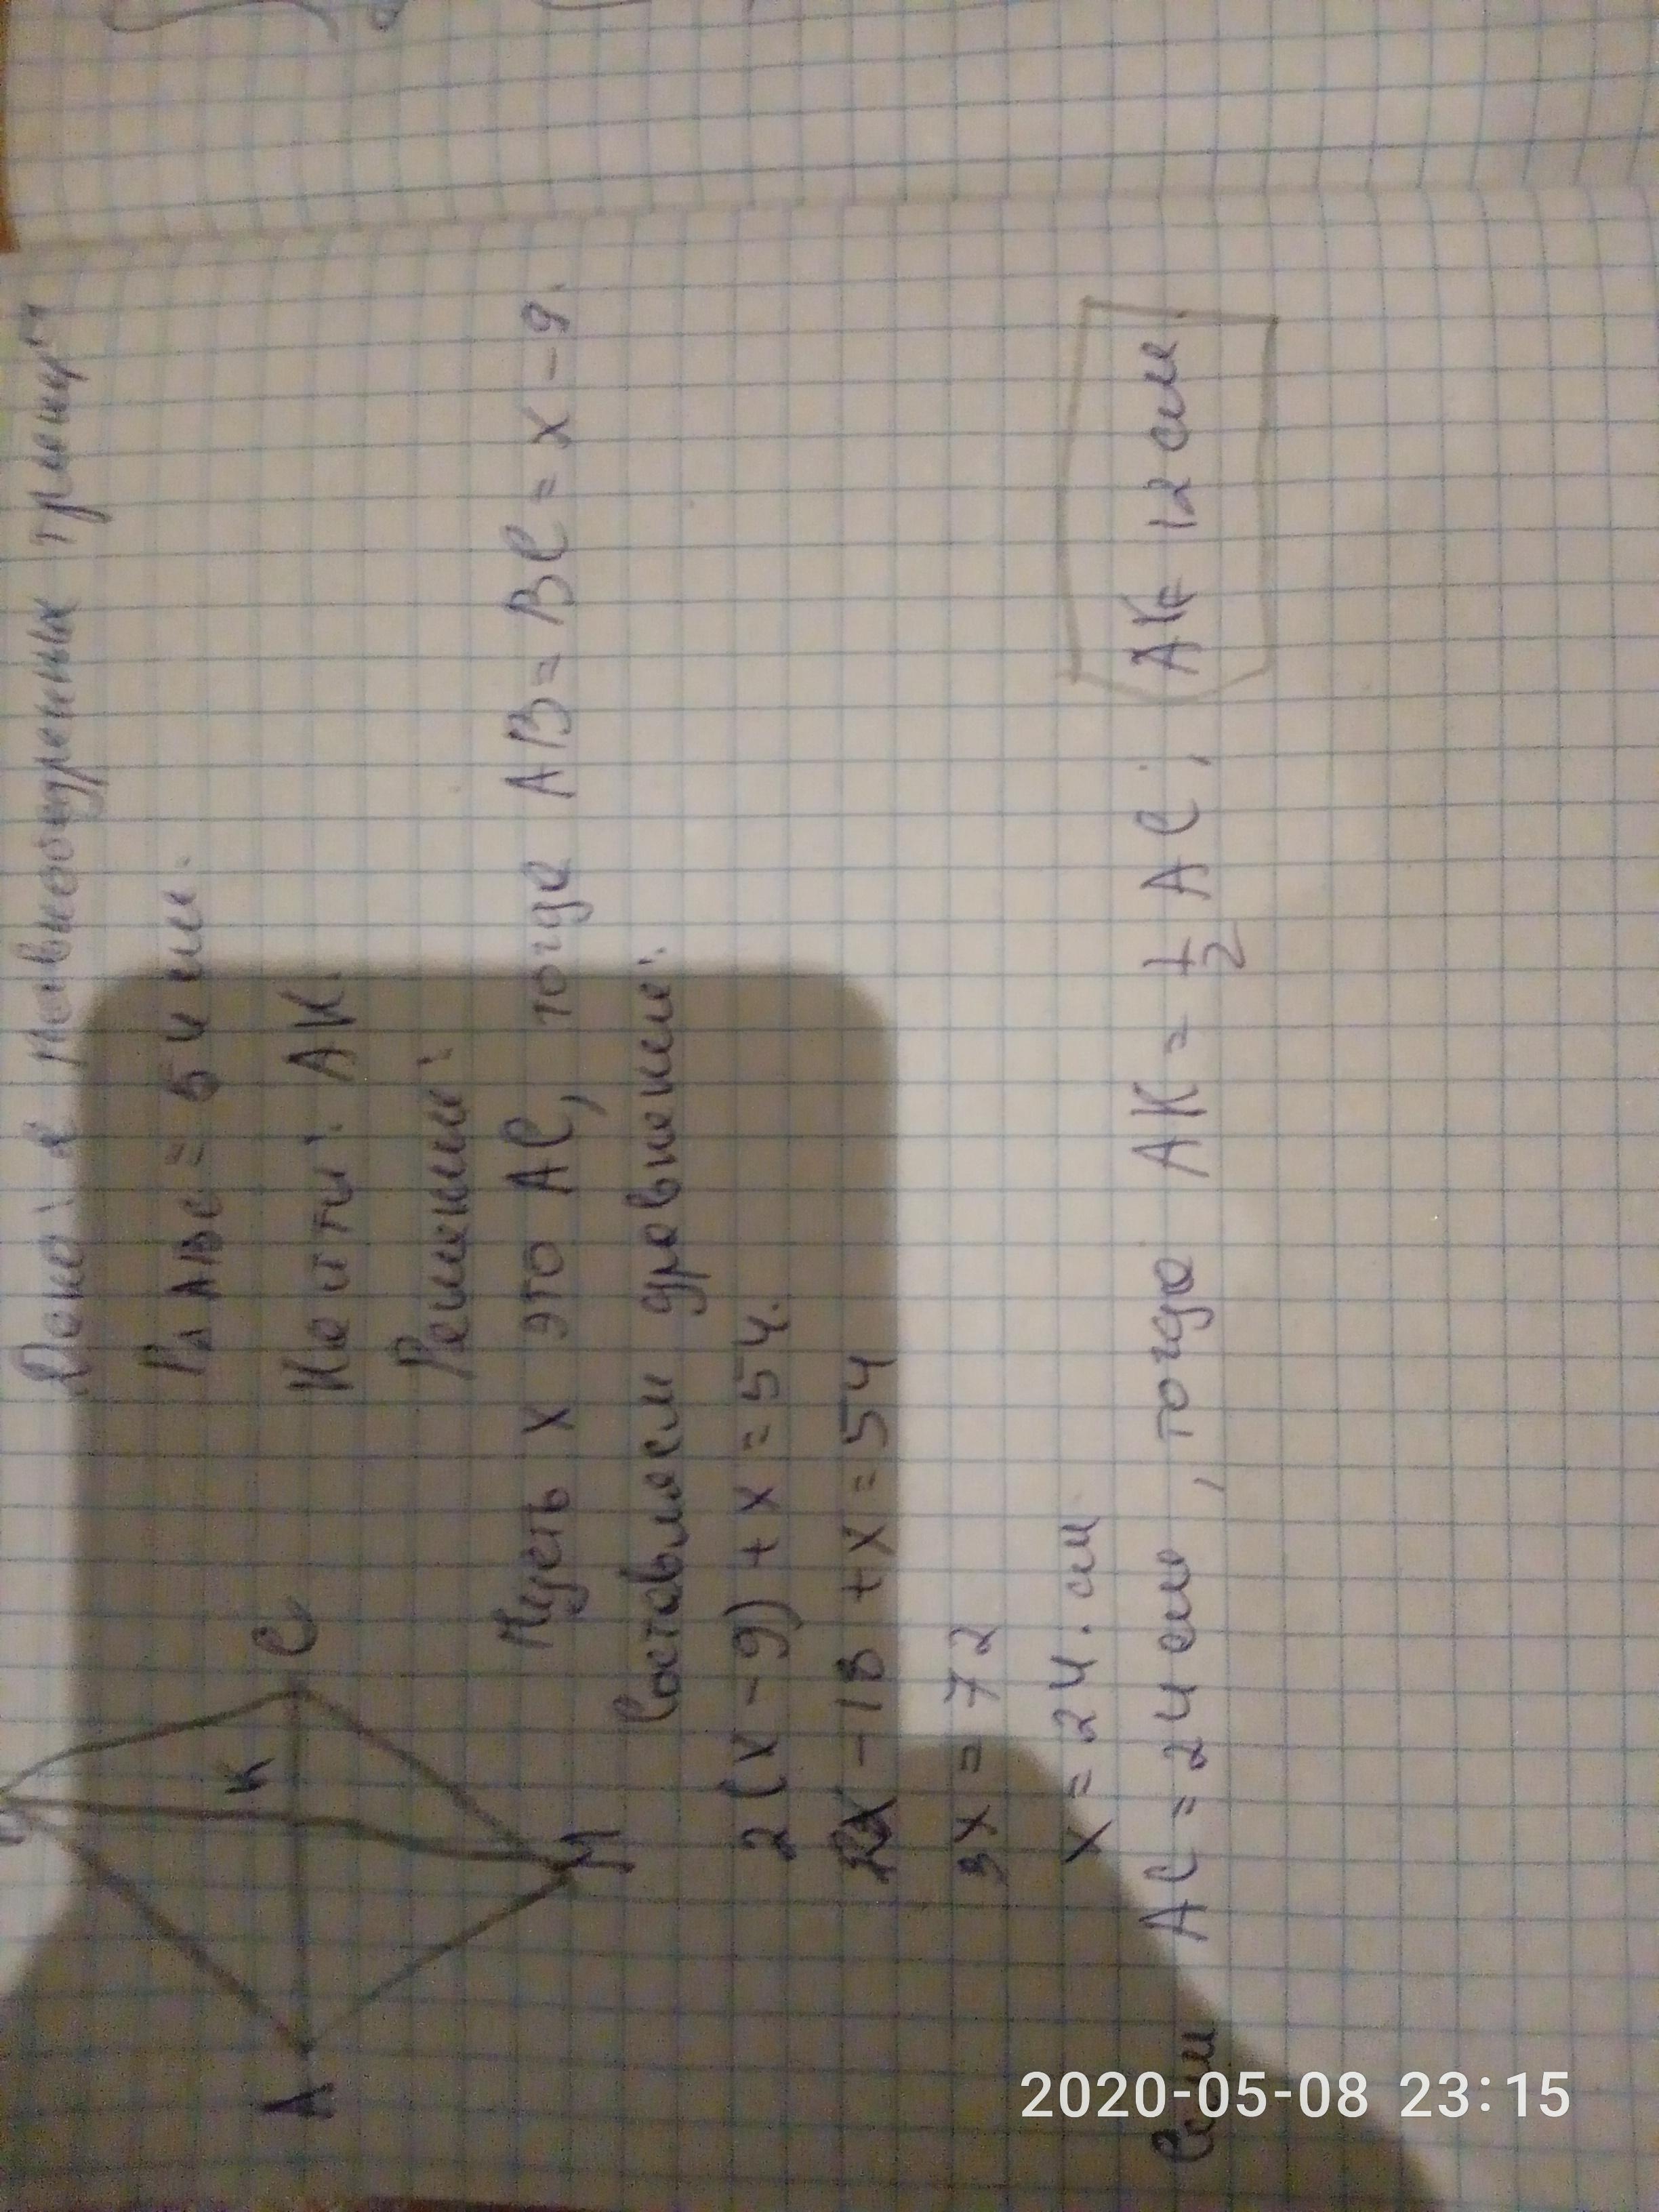 Дано: 2 равнобедренных треуг
P∆ ABC = 54 см.
Найти: AK.
Решение:
A
K
C
M
Пусть x это AC, тогда AB = BC = x - 9.
Составляем уравнение:
2(x - 9) + x = 54.
2x - 18 + x = 54
3x = 72
x = 24. см
Если AC = 24 см, тогда AK = 1/2 AC; AK = 12 см
2020-05-08 23:15